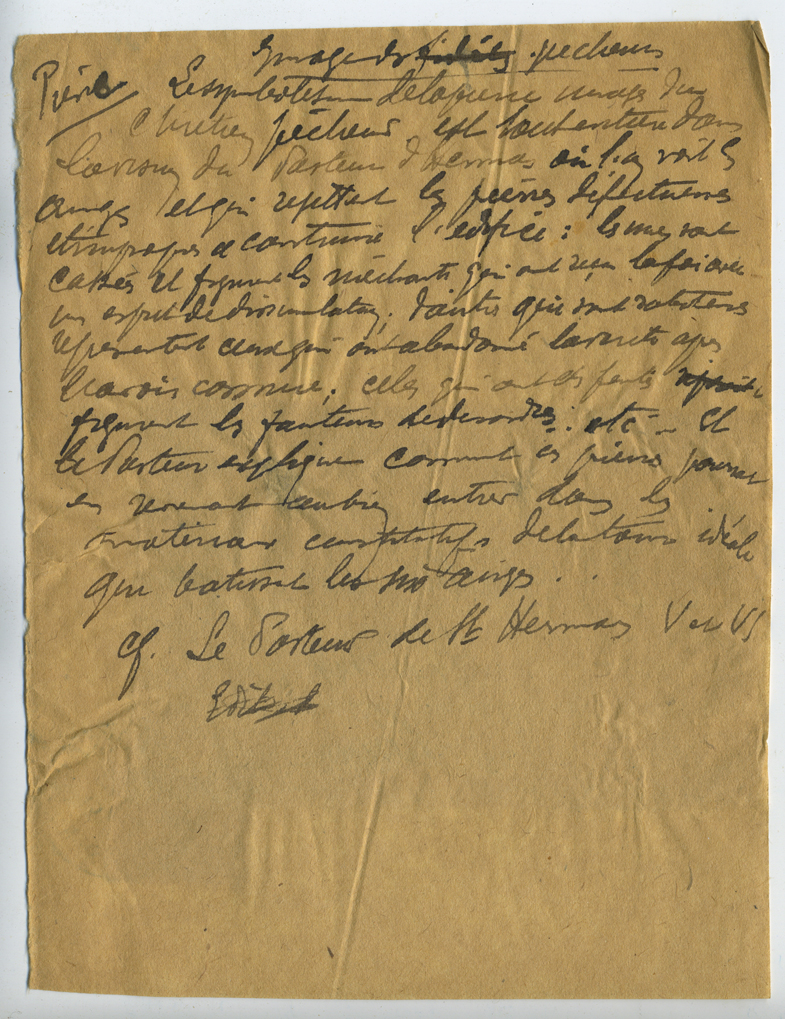 Image des fidèles pécheurs
Pierre Le symbolisme de la pierre image du
Chrétien pécheur, est tout entier dans
la vision du Pasteur d'Hermas où l'on voit les
anges et qui rejettent les pierres défectueuses
et impropres à construire l'édifice : les unes sont
cassées et figurent les méchants qui ont reçu la foi avec
un esprit de dissimulation; d'autres qui sont raboteuses
représentent ceux qui ont abandonné la vérité après
l'avoir connue; celles qui ont des fentes
figurent les fauteurs de désordres; etc - Et
le Pasteur explique comment ces pierres peuvent
en entrer dans les
matériaux constitutifs de la tour idéale
que batissent les six anges . .
cf. Le Pasteur de St Hermas V et VI